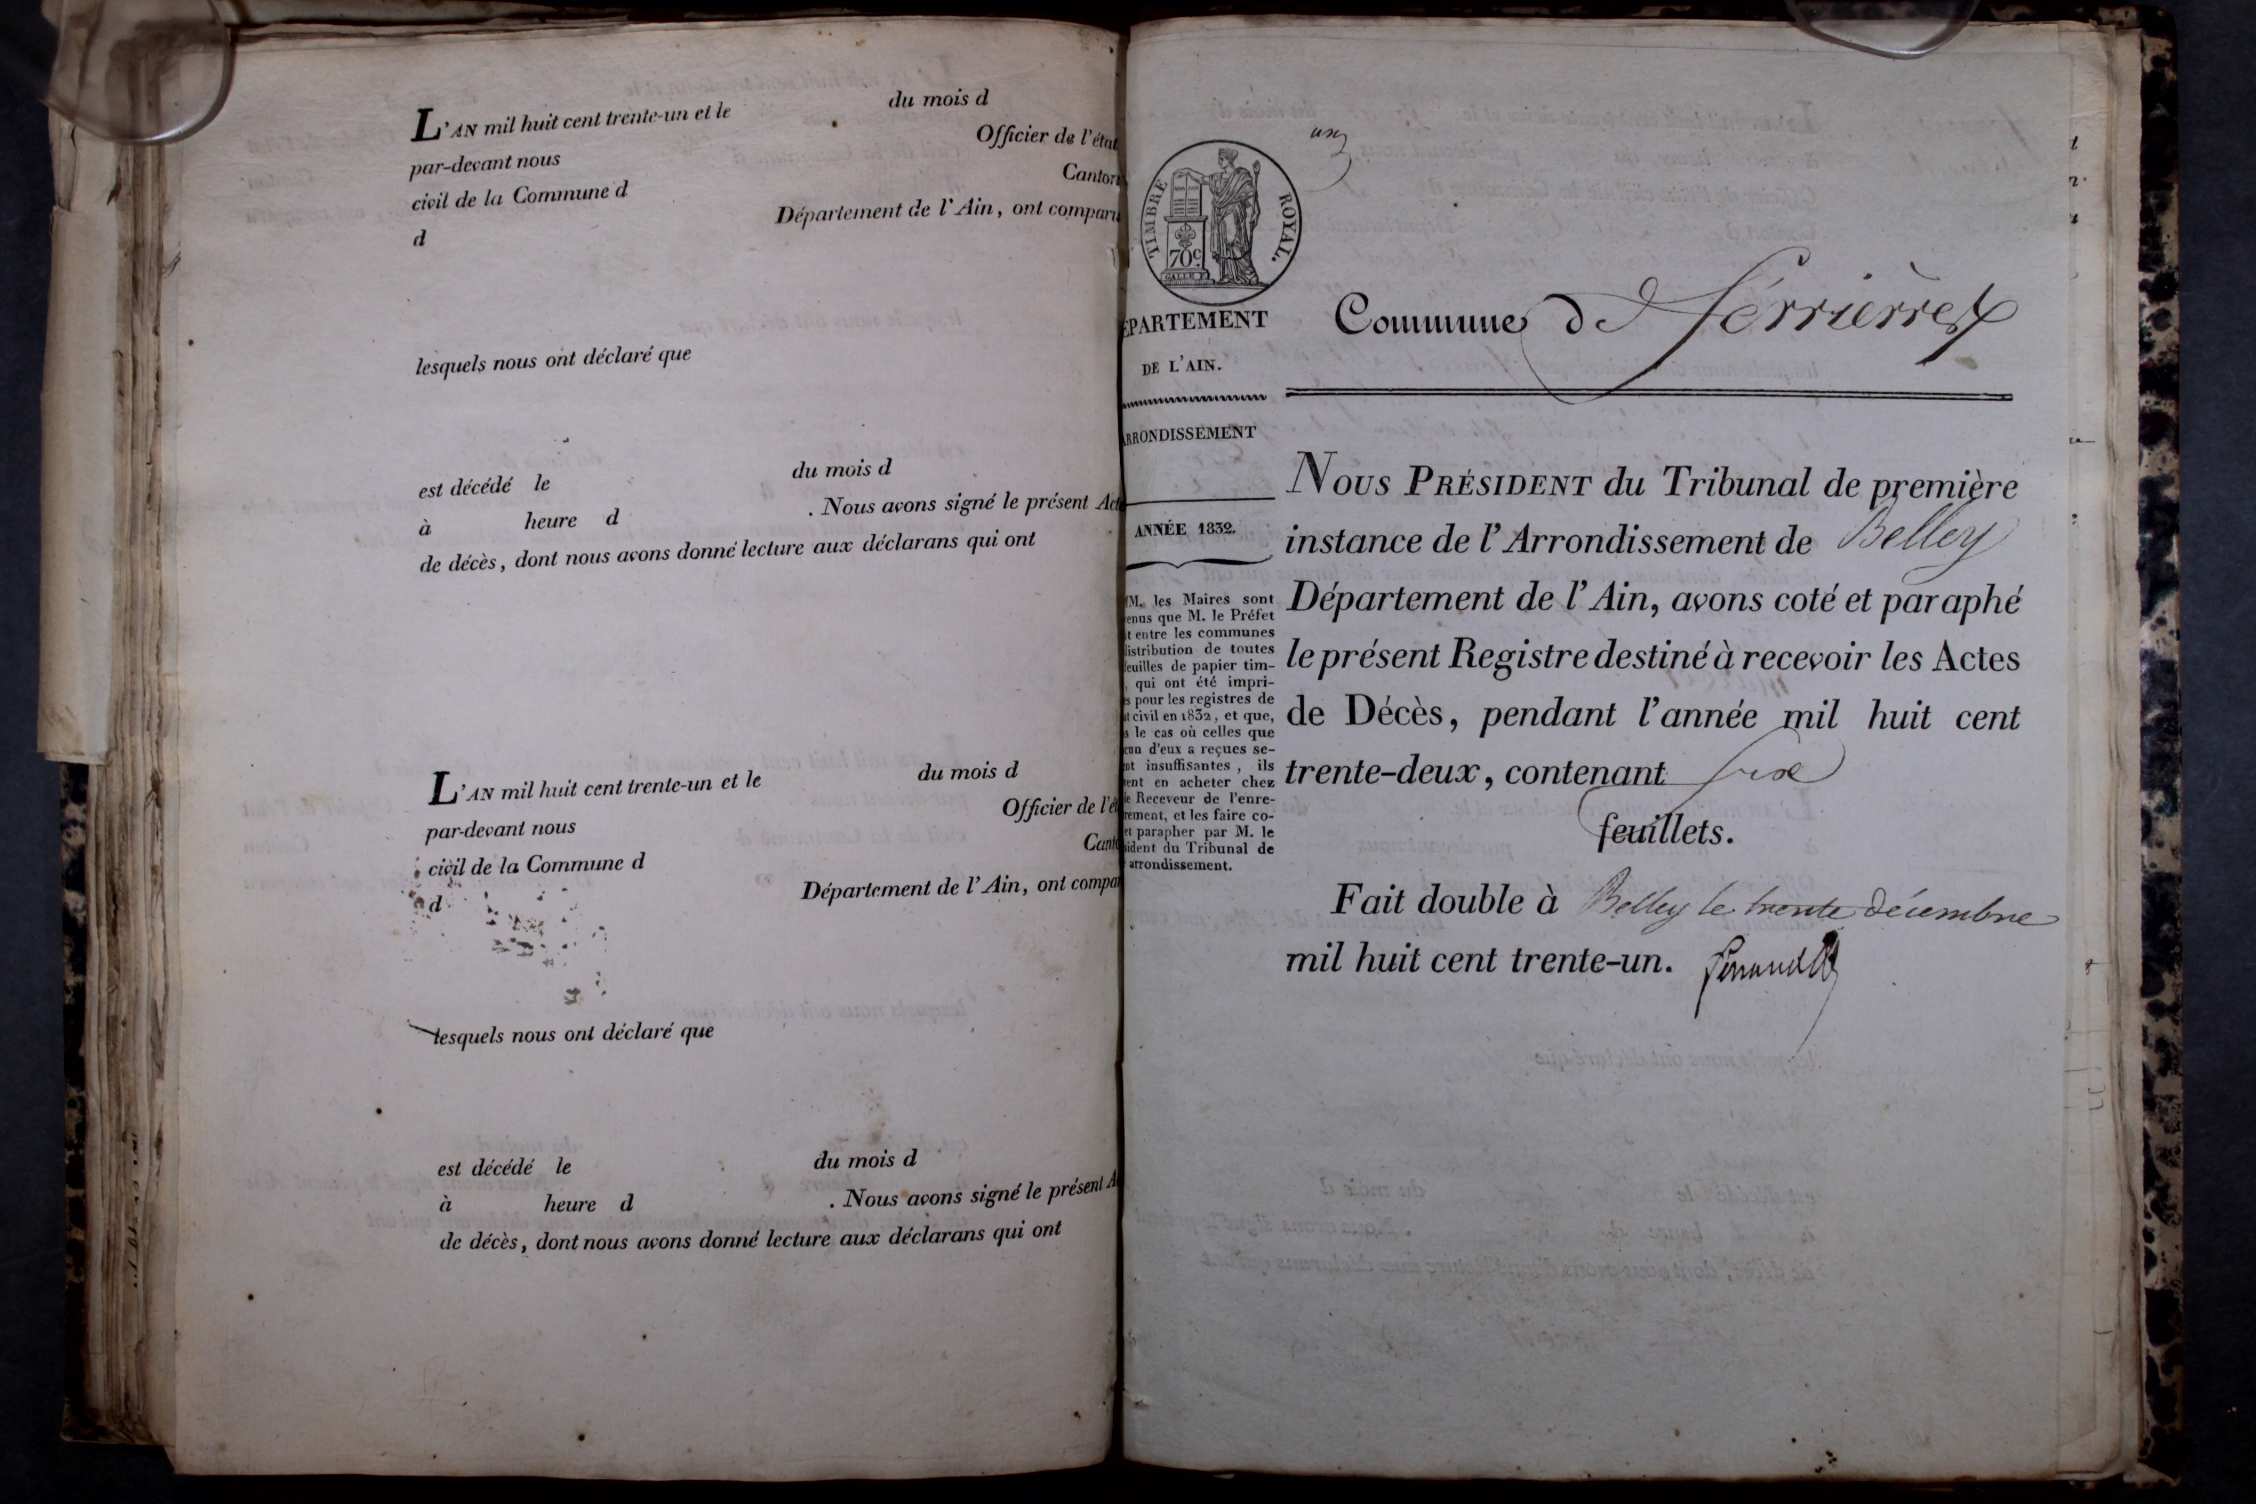 L'AN mil huit cent trente-un et le du mois d
par-devant nous Officier de l'état
civil de la Commune d Canton
d Département de l'Ain, ont comparu
lesquels nous ont déclaré que
est décédé le du mois d
à heure d . Nous avons signé le présent Acte
de décès, dont nous avons donné lecture aux déclarans qui ont
L'AN mil huit cent trente-un et le du mois d
par-devant nous Officier de l'ét
civil de la Commune d Cant
d Département de l'Ain, ont compar
lesquels nous ont déclaré que
est décédé le du mois d
à heure d . Nous avons signé le présent A
de décès, dont nous avons donné lecture aux déclarans qui ont
un
TIMBRE ROYAL.
70c
ÉPARTEMENT
DE L'AIN.
ARRONDISSEMENT
ANNÉE 1832.
MM. les Maires sont
enus que M. le Préfet
t entre les communes
distribution de toutes
feuilles de papier tim-
, qui ont été impri-
s pour les registres de
t civil en 1832, et que,
s le cas où celles que
cun d'eux a reçues se-
nt insuffisantes, ils
ent en acheter chez
e Receveur de l'enre-
rement, et les faire co-
et parapher par M. le
sident du Tribunal de
arrondissement.
Commune de
NOUS PRÉSIDENT du Tribunal de première
instance de l'Arrondissement de Belley
Département de l'Ain, avons coté et paraphé
le présent Registre destiné à recevoir les Actes
de Décès, pendant l'année mil huit cent
trente-deux, contenant six
feuillets.
Fait double à Belley le trente décembre
mil huit cent trente-un.